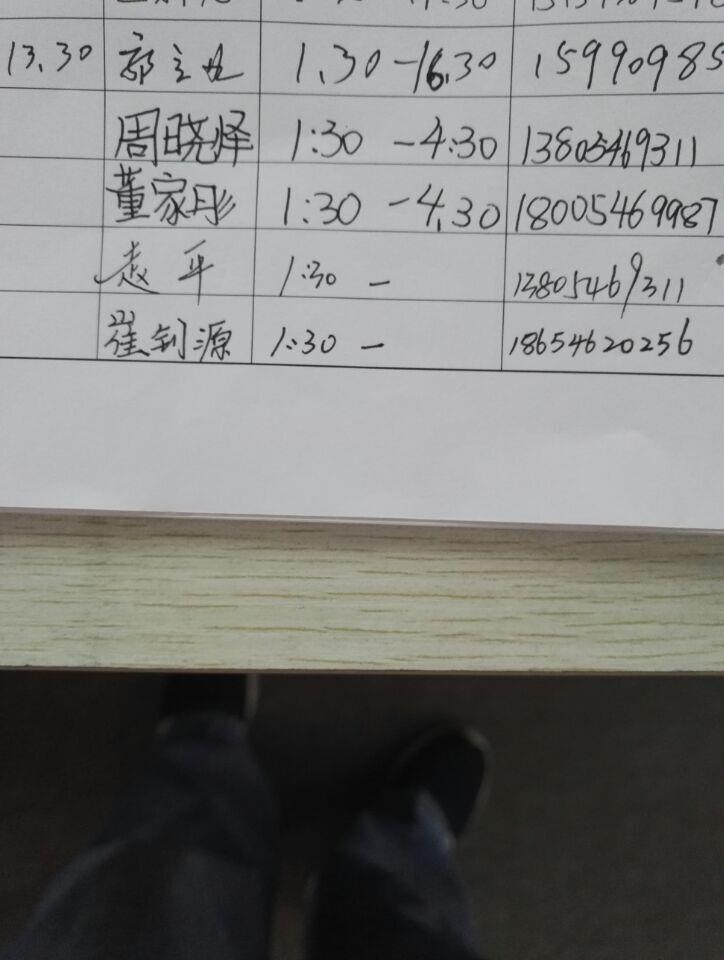 13.30 郭立 1.30-16.30 15990985
周晓烨 1:30-4:30 13805469311
董家彤 1:30-4.30 18005469987
赵平 1:30- 13805469311
崔钊源 1:30- 18654620256